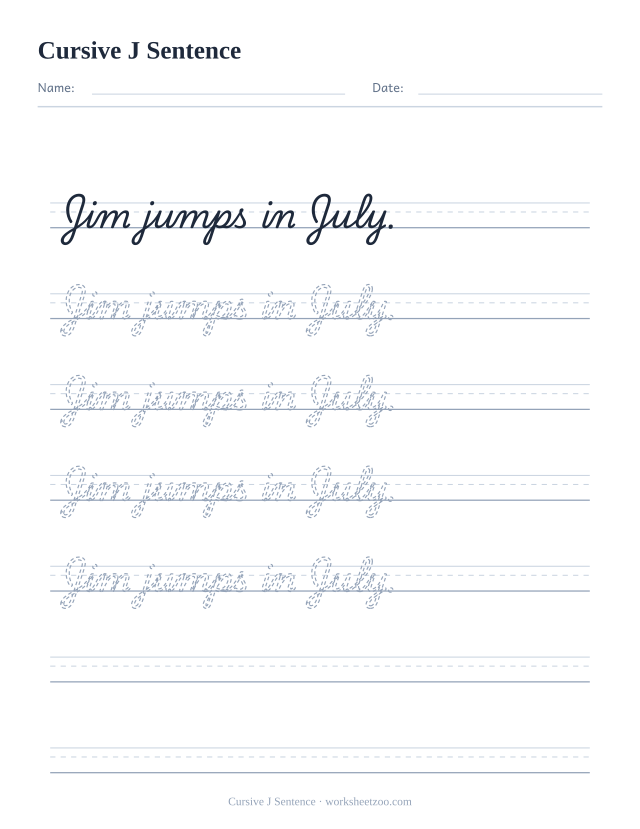 Cursive J Sentence
Name: Date:
Jim jumps in July.
Jim jumps in July.
Jim jumps in July.
Jim jumps in July.
Jim jumps in July.
Cursive J Sentence · worksheetzoo.com